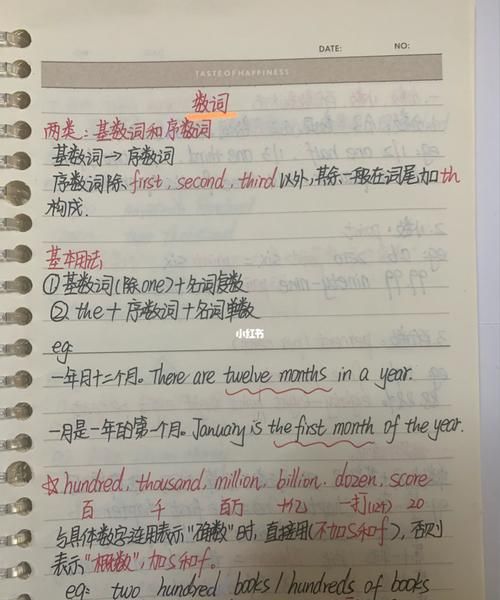 DATE: NO:
TASTE OF HAPPINESS
数词
两类:基数词和序数词
基数词→序数词
序数词除first, second, third以外,其余一般在词尾加th
构成.
基本用法
①基数词(除one)+名词复数
②the+序数词+名词单数
小红书
eg:
一年月十二个月。There are twelve months in a year.
一月是一年的第一个月。January is the first month of the year.
☆hundred, thousand, million, billion. dozen, score
百 千 百万 十亿 一打(12个) 20
与具体数字连用表示"确数"时,直接用(不加s和f),否则
表示"概数",加s和f。
eg: two hundred books / hundreds of books